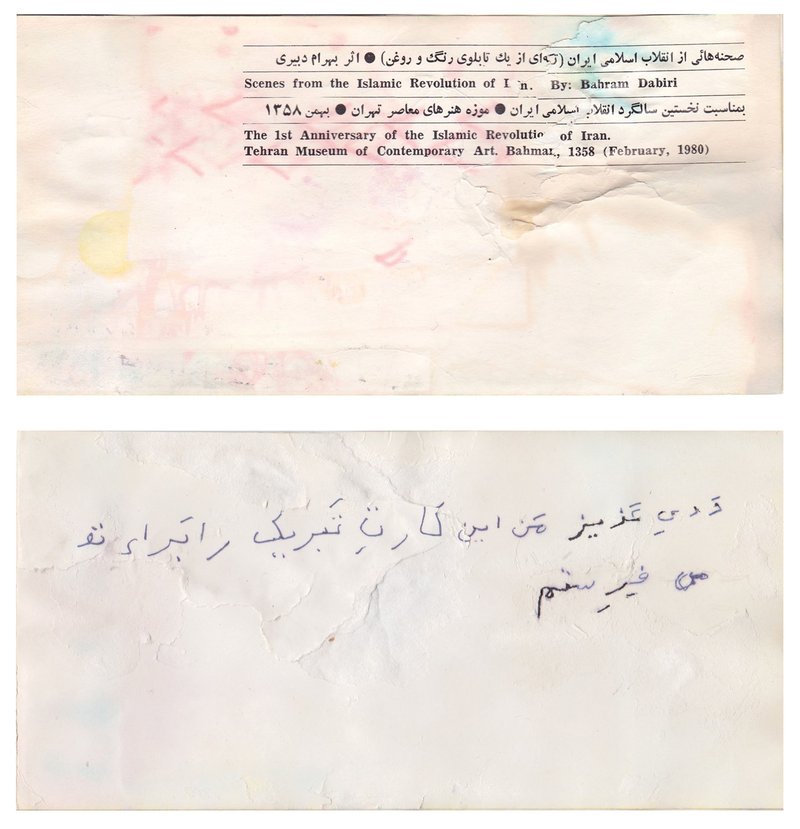 صحنه‌هائی از انقلاب اسلامی ایران ( از یك تابلوی رنگ و روغن) ● اثر بهرام دبیری
Scenes from the Islamic Revolution of I n. By: Bahram Dabiri
بمناسبت نخستین سالگرد انقلاب اسلامی ایران ● موزه هنرهای معاصر تهران ● بهمن ۱۳۵۸
The 1st Anniversary of the Islamic Revolutio of Iran.
Tehran Museum of Contemporary Art. Bahman, 1358 (February, 1980)
عَزیز مَن این کارتِ تَبریک را بَراے تو
می فِرِستم